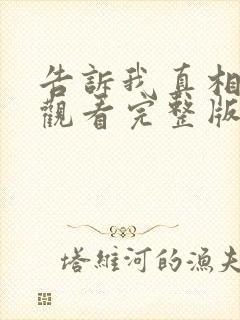 告訴我真相
觀看完整版
塔維河的漁夫